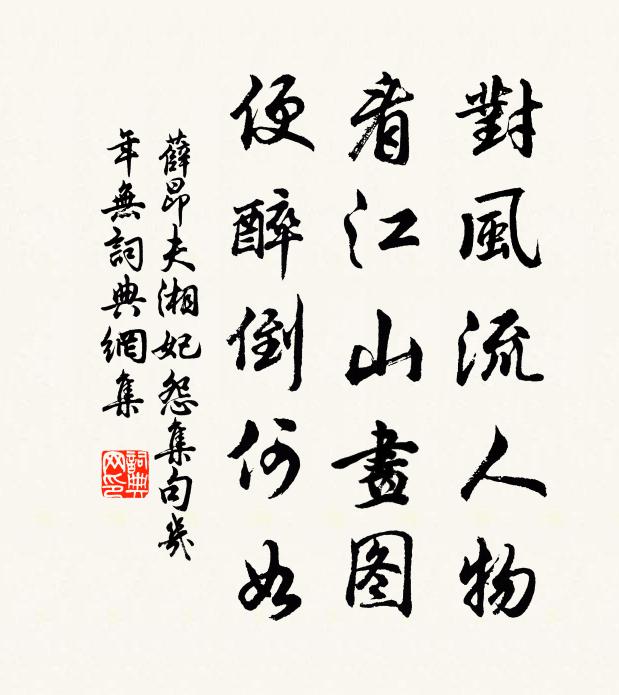 對風流人物
看江山畫图
便醉倒何如
薛昂夫湘妃怨集句幾
年無詞典網集
詞典网印